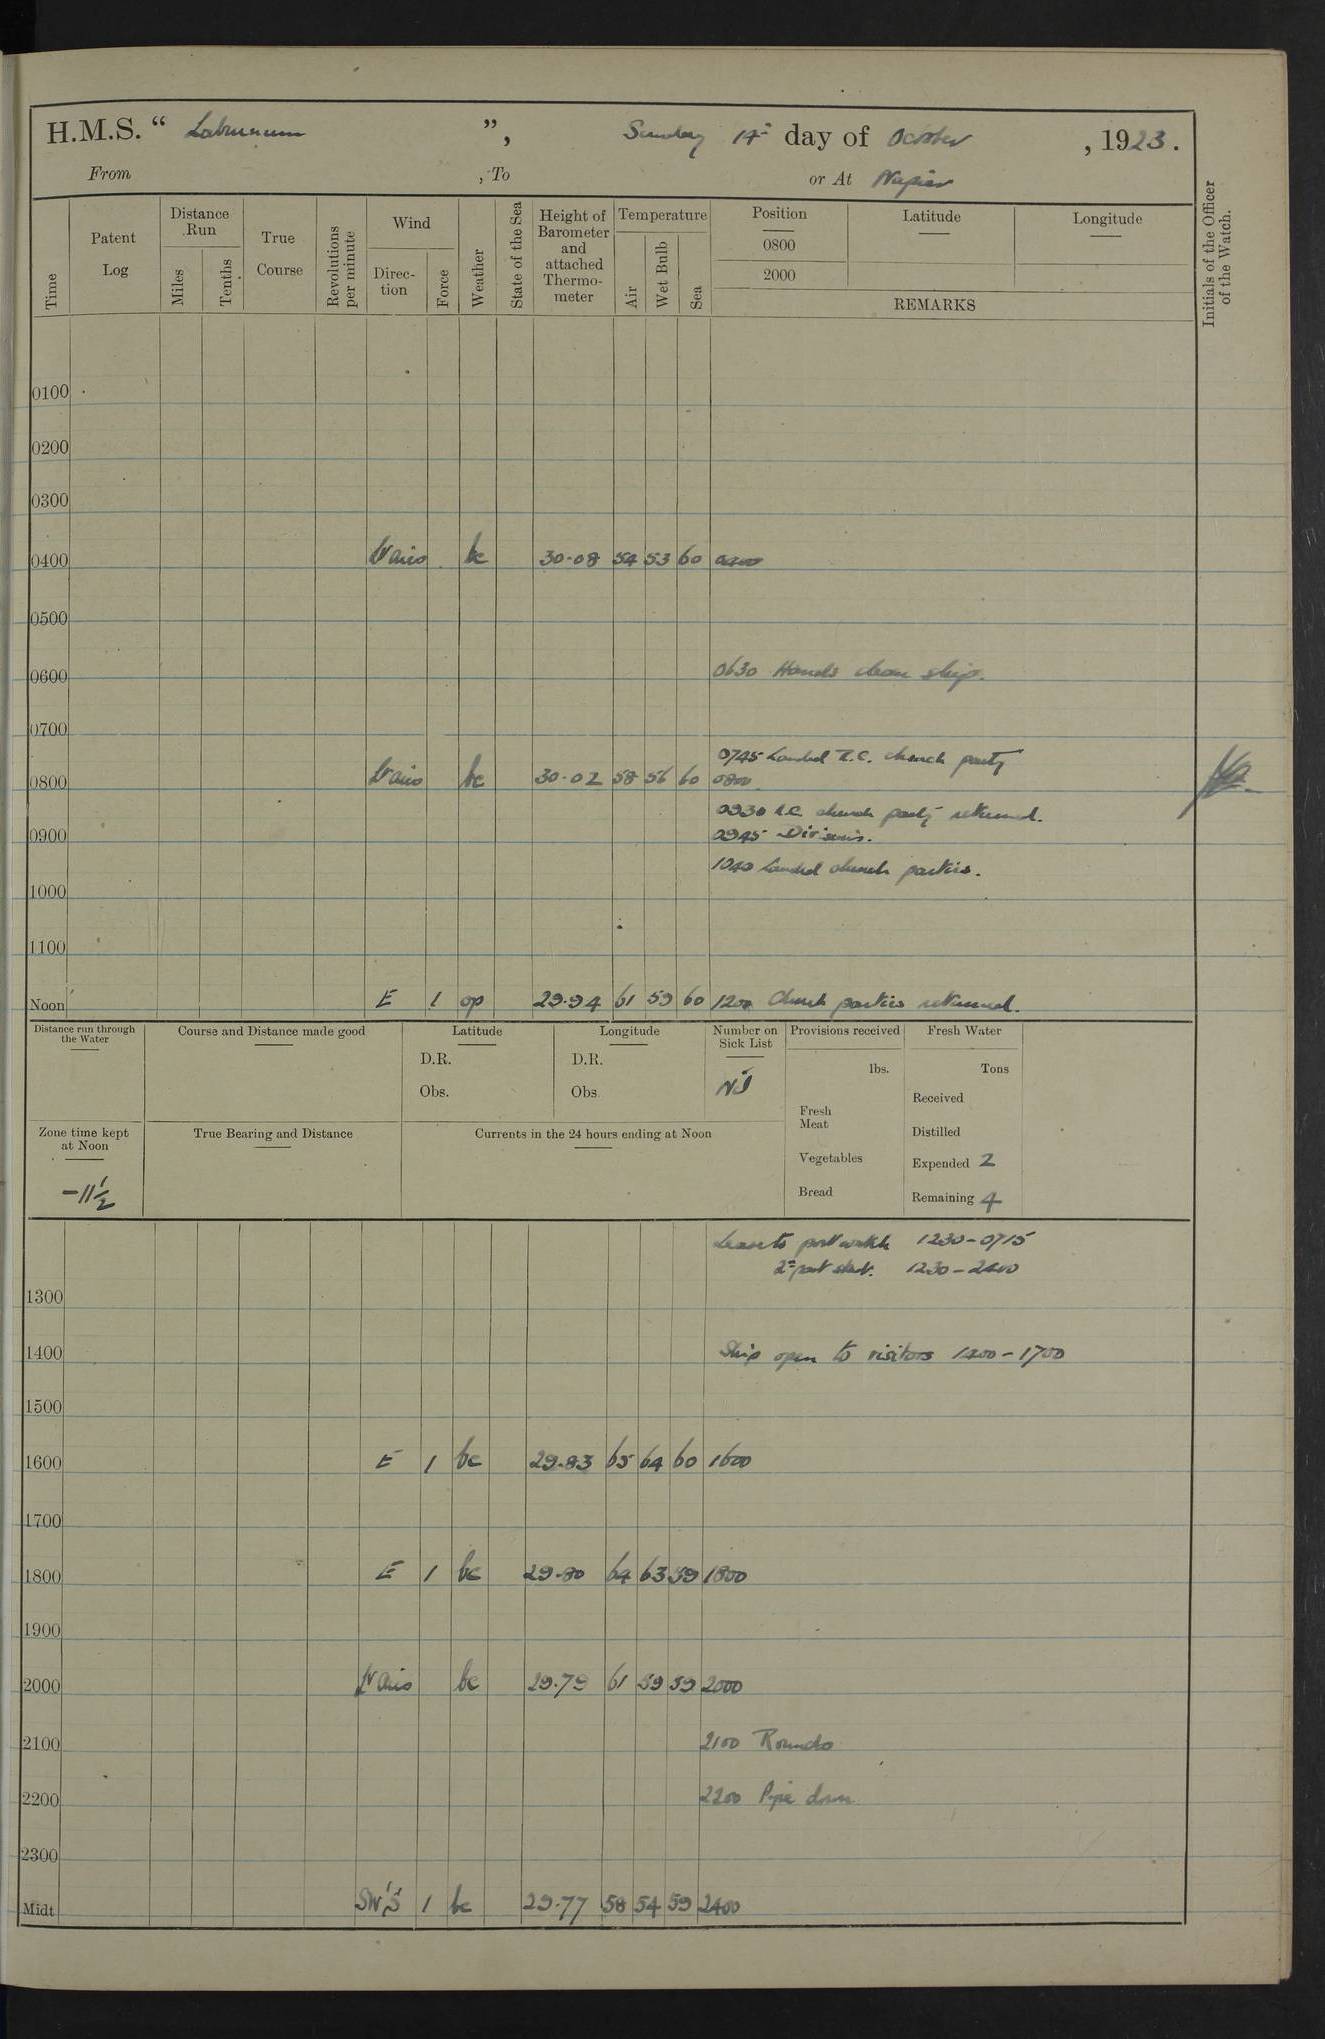 H.M.S. “ Laburnum ”, Sunday 14th day of October , 1923.
From , To or At Napier
Time
Patent Log
Distance Run
Miles
Tenths
True Course
Revolutions per minute
Wind
Direc-tion
Force
Weather
State of the Sea
Height of Barometer and attached Thermo-meter
Temperature
Air
Wet Bulb
Sea
Position Latitude Longitude
0800
2000
REMARKS
Initials of the Officer of the Watch.
0100
0200
0300
0400 Vario bc 30.08 54 53 60 0400
0500
0600 0630 Hands clean ship.
0700
0745 Landed R.C. church party
0800 Vario bc 30.02 58 56 60 0800
0930 R.C. church party returned.
0900 0945 Divisions.
1040 Landed church parties.
1000
1100
Noon E 1 op 29.94 61 59 60 1200 Church parties returned.
Distance run through the Water
Course and Distance made good
Latitude
D.R.
Obs.
Longitude
D.R.
Obs.
Number on Sick List
Nil
Provisions received
lbs.
Fresh Meat
Vegetables
Bread
Fresh Water
Tons
Received
Distilled
Expended 2
Remaining 4
Zone time kept at Noon
-11½
True Bearing and Distance
Currents in the 24 hours ending at Noon
Leave to port watch 1230-0715
2nd part stbd. 1230-2400
1300
1400 Ship open to visitors 1400-1700
1500
1600 E 1 bc 29.83 65 64 60 1600
1700
1800 E 1 bc 29.80 64 63 59 1800
1900
2000 Vario bc 29.79 61 59 59 2000
2100 2100 Rounds
2200 2200 Pipe down
2300
Midt SW'S 1 bc 29.77 58 54 59 2400